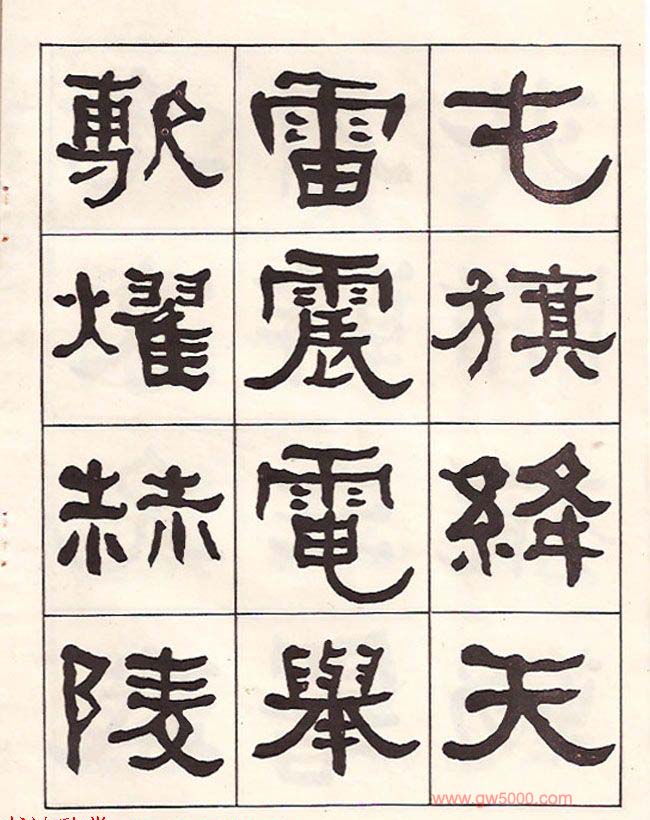 旗絳天
雷震電舉
敷燿赫陵
www.gw5000.com